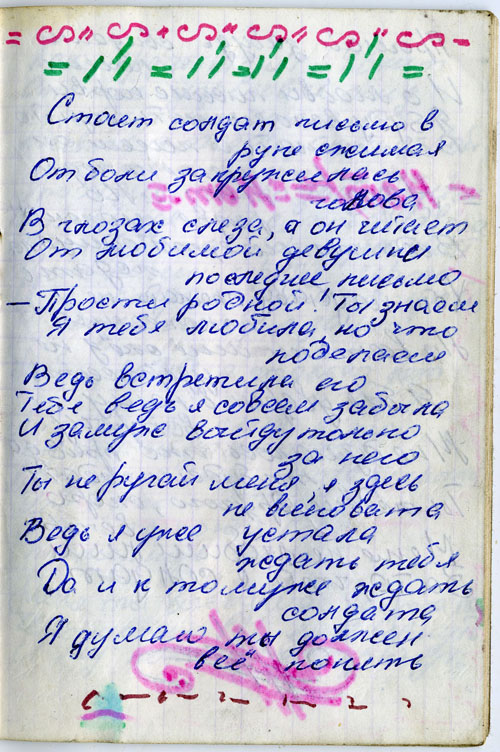 Стоит солдат письмо в
руке сжимая
От боли закружилась
голова
В глазах слеза, а он читает
От любимой девушки
последнее письмо
– Прости родной! Ты знаеш
Я тебя любила, но что
поделаеш
Ведь встретила его
Тебе ведь я совсем забыла
И замуж выйду только
за него
Ты не ругай меня, я здесь
не виновата
Ведь я уже устала
ждать тебя
Да и к томуже ждать
солдата
Я думаю ты должен
всё понять